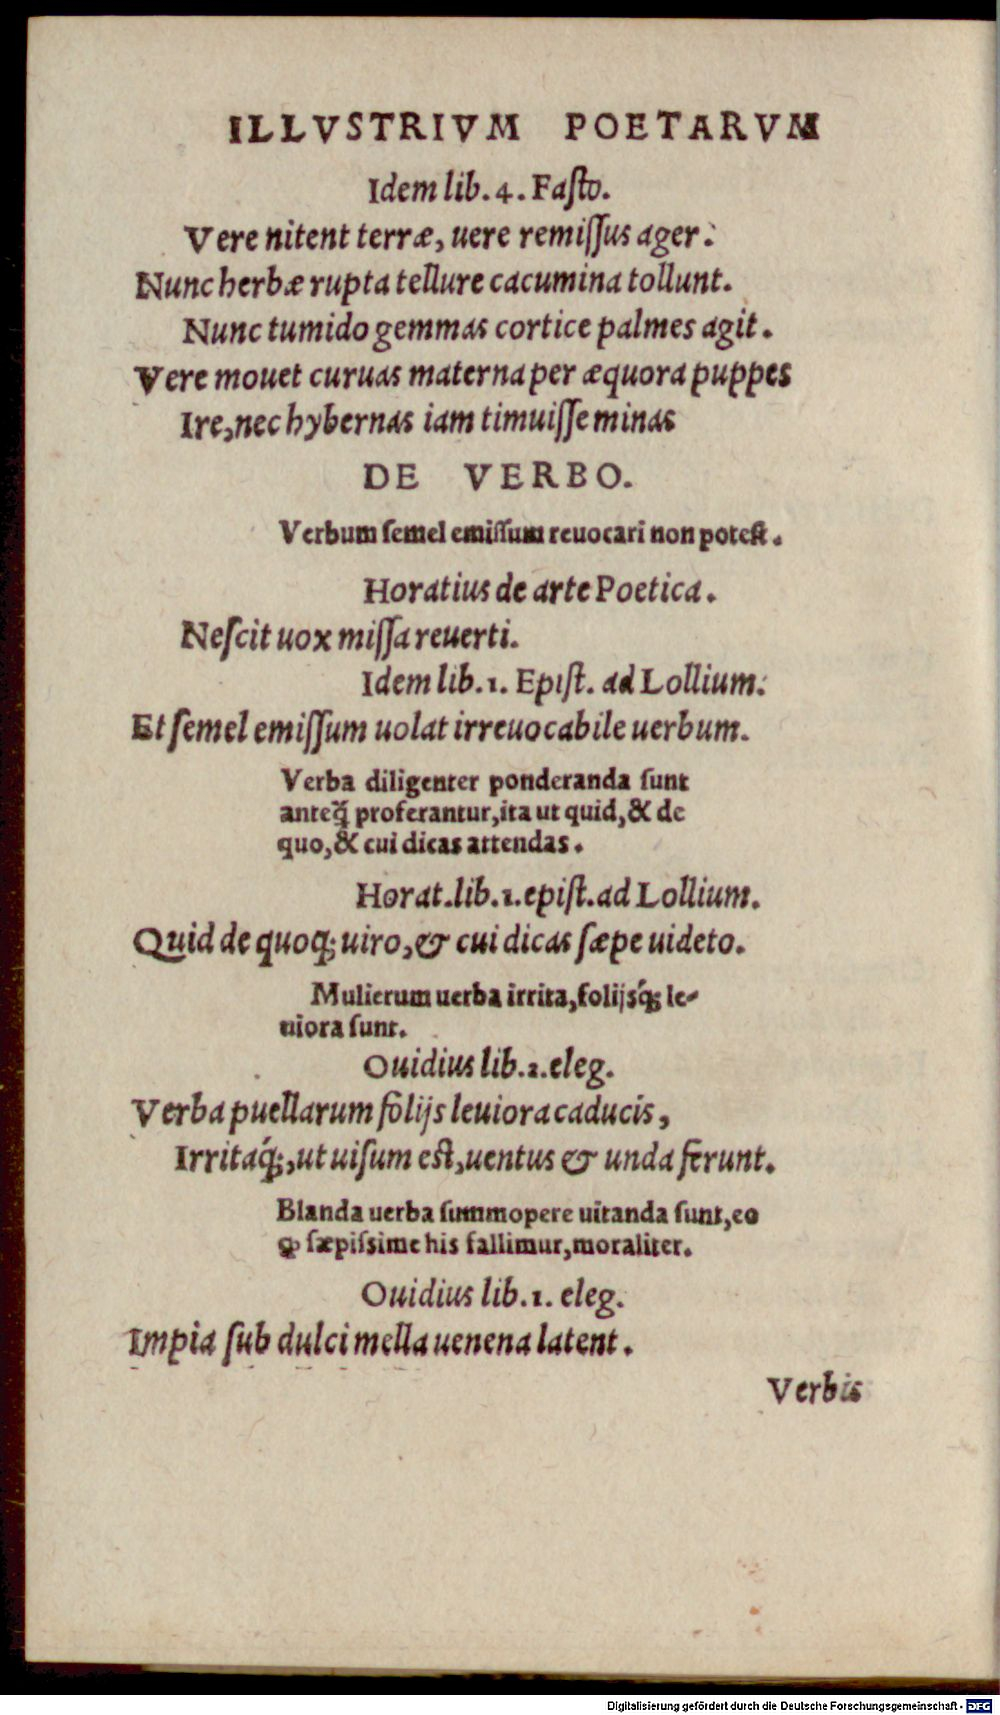 ILLVSTRIVM POETARVM
Idem lib. 4. Fasto.
Vere nitent terræ, uere remiſſus ager.
Nunc herbæ rupta tellure cacumina tollunt.
Nunc tumido gemmas cortice palmes agit.
Vere mouet curuas materna per æquora puppes
Ire, nec hybernas iam timuiſſe minas
DE VERBO.
Verbum ſemel emiſſum reuocari non poteſt.
Horatius de arte Poetica.
Neſcit uox miſſa reuerti.
Idem lib. 1. Epiſt. ad Lollium.
Et ſemel emiſſum uolat irreuocabile uerbum.
Verba diligenter ponderanda ſunt
anteq̃ proferantur, ita ut quid, & de
quo, & cui dicas attendas.
Horat. lib. 1. epiſt. ad Lollium.
Quid de quoq; uiro, & cui dicas ſæpe uideto.
Mulierum uerba irrita, folijsq́; le-
uiora ſunt.
Ouidius lib. 2. eleg.
Verba puellarum folijs leuiora caducis,
Irritaq́;, ut uiſum eſt, uentus & unda ferunt.
Blanda uerba ſummopere uitanda ſunt, eo
ꝙ ſæpiſsime his fallimur, moraliter.
Ouidius lib. 1. eleg.
Impia ſub dulci mella uenena latent.
Verbis
Digitalisierung gefördert durch die Deutsche Forschungsgemeinschaft - DFG